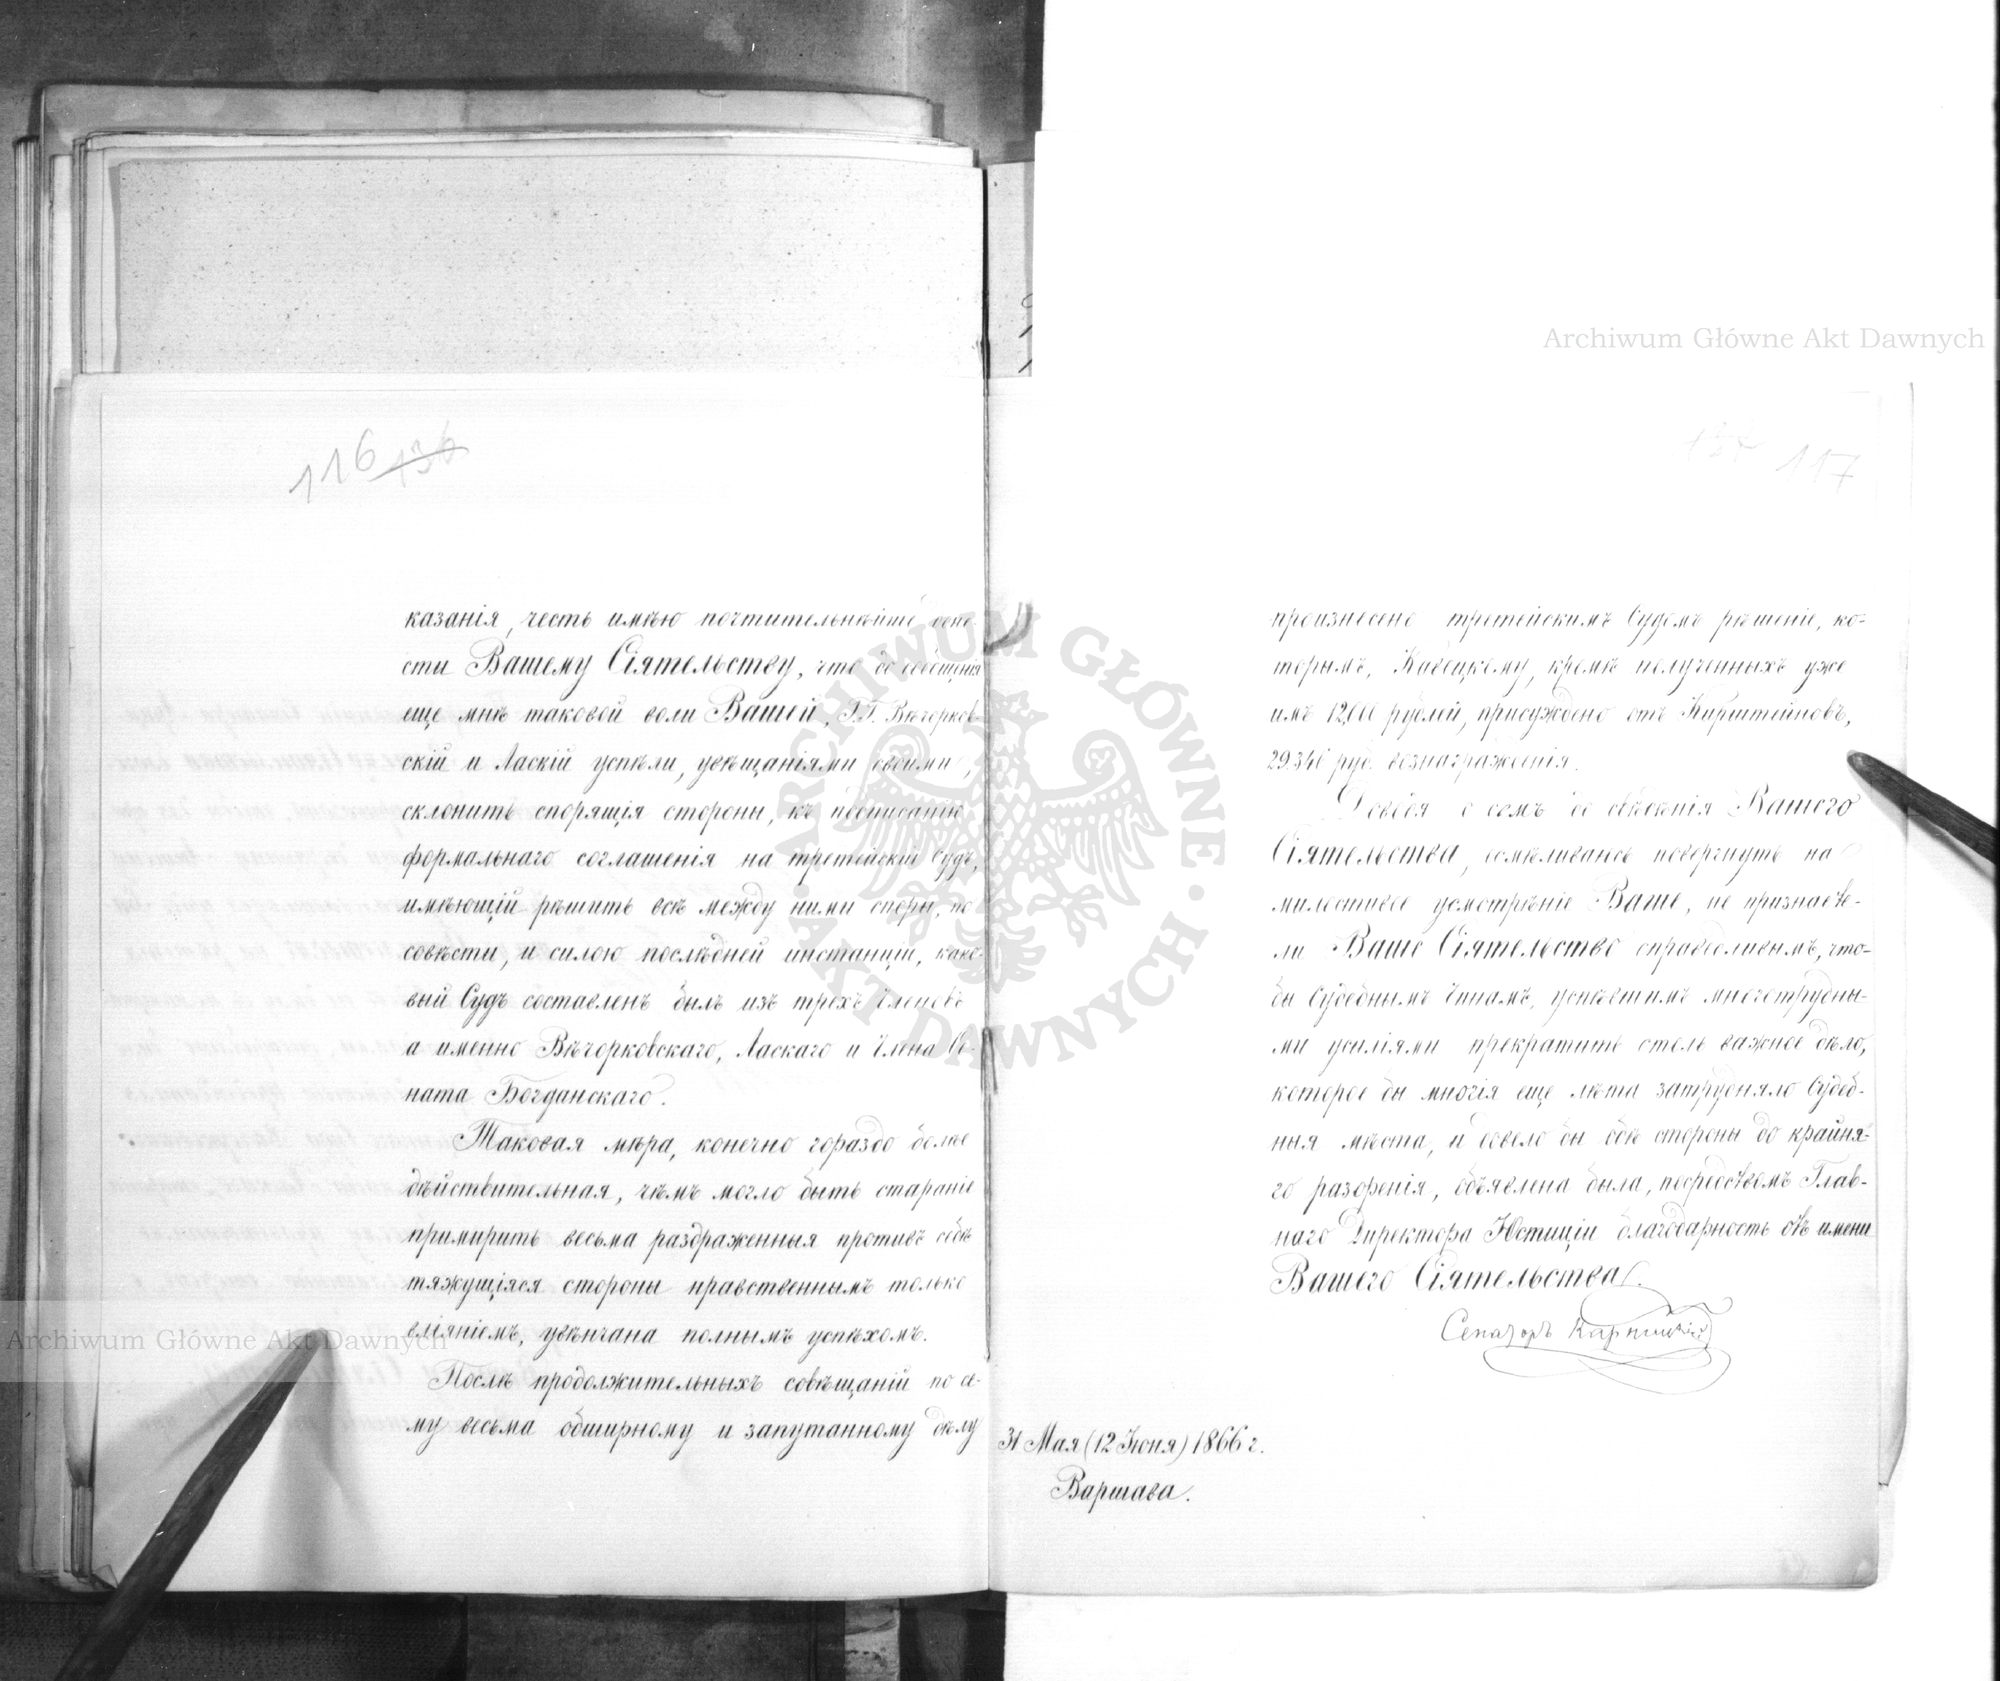 116 136
казанія, честь имѣю почтительнѣйше доне-
сти Вашему Сіятельству, что до сообщенія
еще мнѣ таковой воли Вашей, Г.Г. Вѣчорков-
скій и Ласкій успѣли, увѣщаніями своими,
склонить спорящія стороны, къ подписанію
формальнаго соглашенія на третейскій Судъ,
имѣющій рѣшить всѣ между ними споры, по
совѣсти, и силою послѣдней инстанціи, како-
вый Судъ составленъ былъ изъ трехъ Членовъ
а именно Вѣчорковскаго, Ласкаго и Члена Се-
ната Богданскаго.
Таковая мѣра, конечно гораздо болѣе
дѣйствительная, чѣмъ могло быть стараніе
примирить весьма раздраженныя противъ себѣ
тяжущіяся стороны нравственнымъ только
вліяніемъ, увѣнчана полнымъ успѣхомъ.
Послѣ продолжительныхъ совѣщаній по се-
му весьма обширному и запутанному дѣлу
137 117
произнесено третейскимъ Судомъ рѣшеніе, ко-
торымъ, кромѣ полученныхъ уже
имъ рублей, присуждено отъ
руб. вознагражденія.
Доводя о семъ до свѣдѣнія Вашего
Сіятельства, осмѣливаюсь повергнуть на
милостивое усмотрѣніе Ваше, не признаете-
ли Ваше Сіятельство справедливымъ, что-
бы Судебнымъ Чинамъ, успѣвшимъ многотрудны-
ми усиліями прекратить столь важное дѣло,
которое бы многія еще лѣта затрудняло Судеб-
ныя мѣста, и довело бы обѣ стороны до крайня-
го разоренія, объявлена была, посредствомъ Глав-
наго Директора Юстиціи благодарность отъ имени
Вашего Сіятельства.
Сенаторъ
31 Мая (12 Іюня) 1866 г.
Варшава.
Archiwum Główne Akt Dawnych
Archiwum Główne Akt Dawnych
ARCHIWUM GŁÓWNE · AKT DAWNYCH ·